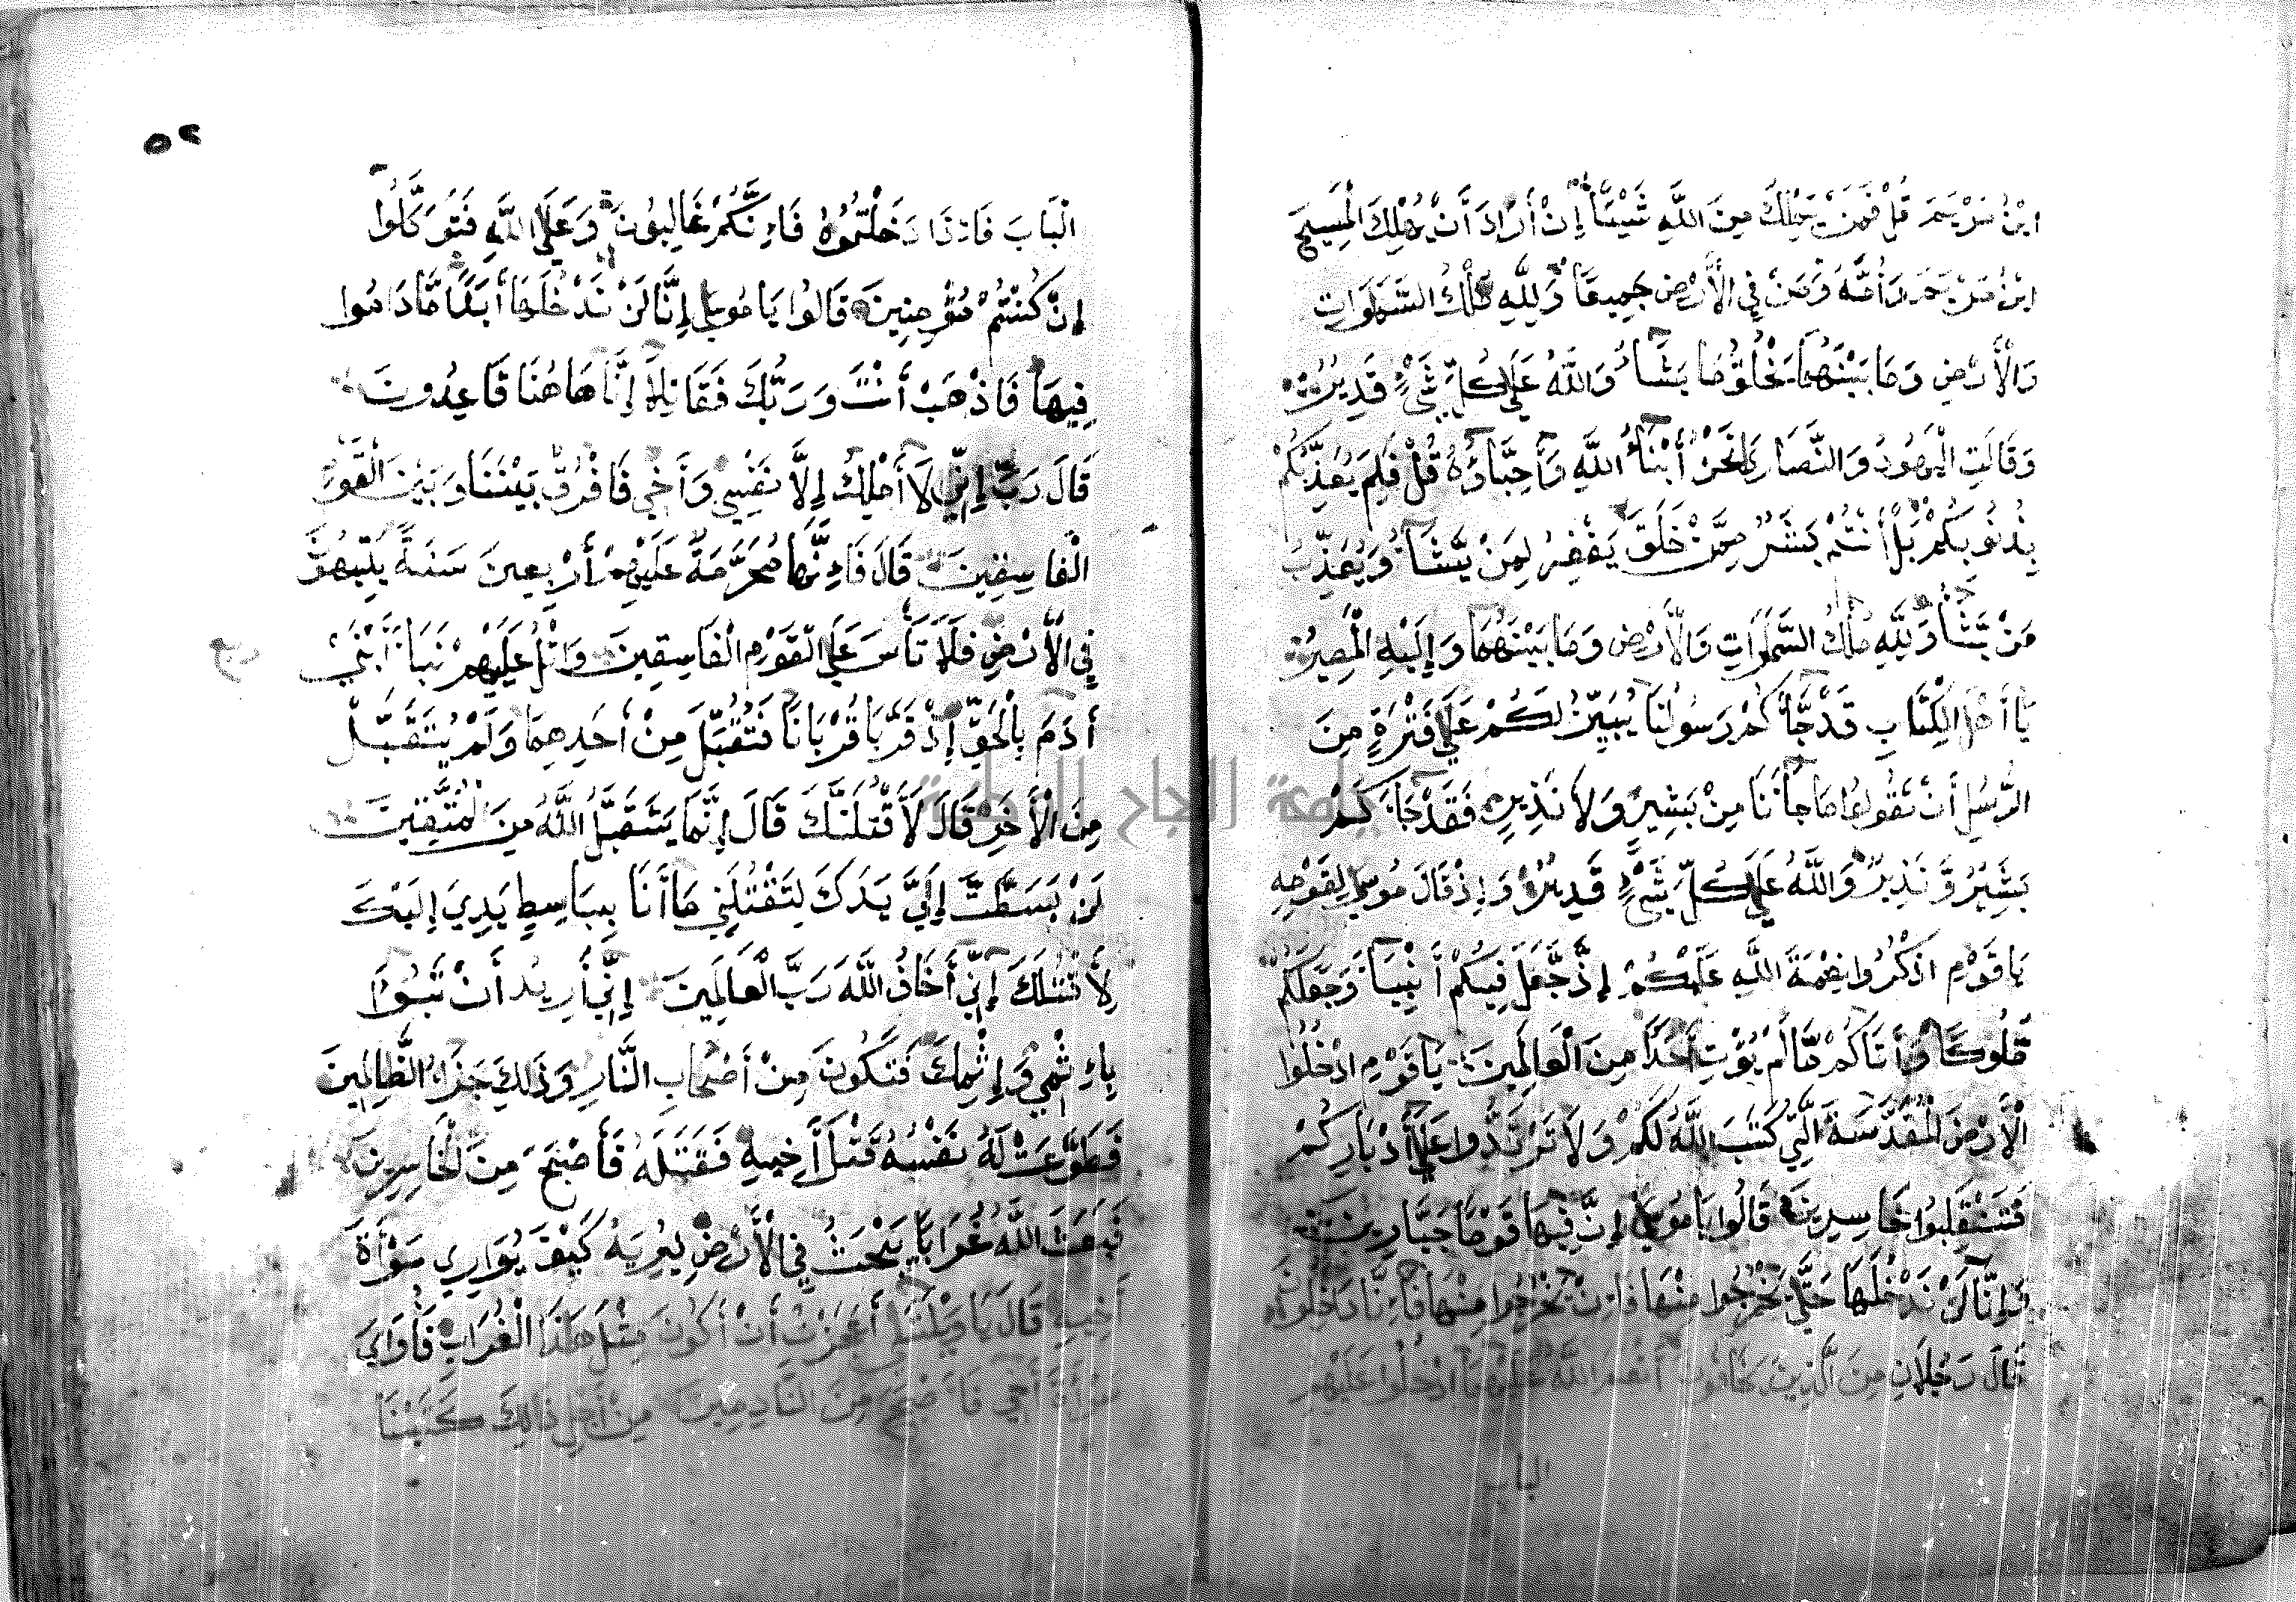 ابْنُ مَرْيَمَ قُلْ فَمَنْ يَمْلِكُ مِنَ اللَّهِ شَيْئًا إِنْ أَرَادَ أَنْ يُهْلِكَ الْمَسِيحَ
ابْنَ مَرْيَمَ وَأُمَّهُ وَمَنْ فِي الْأَرْضِ جَمِيعًا وَلِلَّهِ مُلْكُ السَّمَوَاتِ
وَالْأَرْضِ وَمَا بَيْنَهُمَا يَخْلُقُ مَا يَشَاءُ وَاللَّهُ عَلَى كُلِّ شَيْءٍ قَدِيرٌ
وَقَالَتِ الْيَهُودُ وَالنَّصَارَى نَحْنُ أَبْنَاءُ اللَّهِ وَأَحِبَّاؤُهُ قُلْ فَلِمَ يُعَذِّبُكُمْ
بِذُنُوبِكُمْ بَلْ أَنْتُمْ بَشَرٌ مِمَّنْ خَلَقَ يَغْفِرُ لِمَنْ يَشَاءُ وَيُعَذِّبُ
مَنْ يَشَاءُ وَلِلَّهِ مُلْكُ السَّمَوَاتِ وَالْأَرْضِ وَمَا بَيْنَهُمَا وَإِلَيْهِ الْمَصِيرُ
يَا أَهْلَ الْكِتَابِ قَدْ جَاءَكُمْ رَسُولُنَا يُبَيِّنُ لَكُمْ عَلَى فَتْرَةٍ مِنَ
الرُّسُلِ أَنْ تَقُولُوا مَا جَاءَنَا مِنْ بَشِيرٍ وَلَا نَذِيرٍ فَقَدْ جَاءَكُمْ
بَشِيرٌ وَنَذِيرٌ وَاللَّهُ عَلَى كُلِّ شَيْءٍ قَدِيرٌ وَإِذْ قَالَ مُوسَى لِقَوْمِهِ
يَا قَوْمِ اذْكُرُوا نِعْمَةَ اللَّهِ عَلَيْكُمْ إِذْ جَعَلَ فِيكُمْ أَنْبِيَاءَ وَجَعَلَكُمْ
مُلُوكًا وَأَتَاكُمْ مَا لَمْ يُؤْتِ أَحَدًا مِنَ الْعَالَمِينَ يَا قَوْمِ ادْخُلُوا
الْأَرْضَ الْمُقَدَّسَةَ الَّتِي كَتَبَ اللَّهُ لَكُمْ وَلَا تَرْتَدُّوا عَلَى أَدْبَارِكُمْ
فَتَنْقَلِبُوا خَاسِرِينَ قَالُوا يَا مُوسَى إِنَّ فِيهَا قَوْمًا جَبَّارِينَ
وَإِنَّا لَنْ نَدْخُلَهَا حَتَّى يَخْرُجُوا مِنْهَا فَإِنْ يَخْرُجُوا مِنْهَا فَإِنَّا دَاخِلُونَ
قَالَ رَجُلَانِ مِنَ الَّذِينَ يَخَافُونَ أَنْعَمَ اللَّهُ عَلَيْهِمَا ادْخُلُوا عَلَيْهِمُ
الباب
٥٢
الْبَابَ فَإِذَا دَخَلْتُمُوهُ فَإِنَّكُمْ غَالِبُونَ وَعَلَى اللَّهِ فَتَوَكَّلُوا
إِنْ كُنْتُمْ مُؤْمِنِينَ قَالُوا يَا مُوسَى إِنَّا لَنْ نَدْخُلَهَا أَبَدًا مَا دَامُوا
فِيهَا فَاذْهَبْ أَنْتَ وَرَبُّكَ فَقَاتِلَا إِنَّا هَاهُنَا قَاعِدُونَ
قَالَ رَبِّ إِنِّي لَا أَمْلِكُ إِلَّا نَفْسِي وَأَخِي فَافْرُقْ بَيْنَنَا وَبَيْنَ الْقَوْمِ
الْفَاسِقِينَ قَالَ فَإِنَّهَا مُحَرَّمَةٌ عَلَيْهِمْ أَرْبَعِينَ سَنَةً يَتِيهُونَ
فِي الْأَرْضِ فَلَا تَأْسَ عَلَى الْقَوْمِ الْفَاسِقِينَ وَاتْلُ عَلَيْهِمْ نَبَأَ ابْنَيْ
ربع
أَدَمَ بِالْحَقِّ إِذْ قَرَّبَا قُرْبَانًا فَتُقُبِّلَ مِنْ أَحَدِهِمَا وَلَمْ يُتَقَبَّلْ
مِنَ الْأَخَرِ قَالَ لَأَقْتُلَنَّكَ قَالَ إِنَّمَا يَتَقَبَّلُ اللَّهُ مِنَ الْمُتَّقِينَ
لَئِنْ بَسَطْتَ إِلَيَّ يَدَكَ لِتَقْتُلَنِي مَا أَنَا بِبَاسِطٍ يَدِيَ إِلَيْكَ
لِأَقْتُلَكَ إِنِّي أَخَافُ اللَّهَ رَبَّ الْعَالَمِينَ إِنِّي أُرِيدُ أَنْ تَبُوأَ
بِإِثْمِي وَإِثْمِكَ فَتَكُونَ مِنْ أَصْحَابِ النَّارِ وَذَلِكَ جَزَاءُ الظَّالِمِينَ
فَطَوَّعَتْ لَهُ نَفْسُهُ قَتْلَ أَخِيهِ فَقَتَلَهُ فَأَصْبَحَ مِنَ الْخَاسِرِينَ
فَبَعَثَ اللَّهُ غُرَابًا يَبْحَثُ فِي الْأَرْضِ لِيُرِيَهُ كَيْفَ يُوَارِي سَوْأَةَ
أَخِيهِ قَالَ يَا وَيْلَتَى أَعَجَزْتُ أَنْ أَكُونَ مِثْلَ هَذَا الْغُرَابِ فَأُوَارِيَ
سَوْأَةَ أَخِي فَأَصْبَحَ مِنَ النَّادِمِينَ مِنْ أَجْلِ ذَلِكَ كَتَبْنَا
جامعة النجاح الوطنية